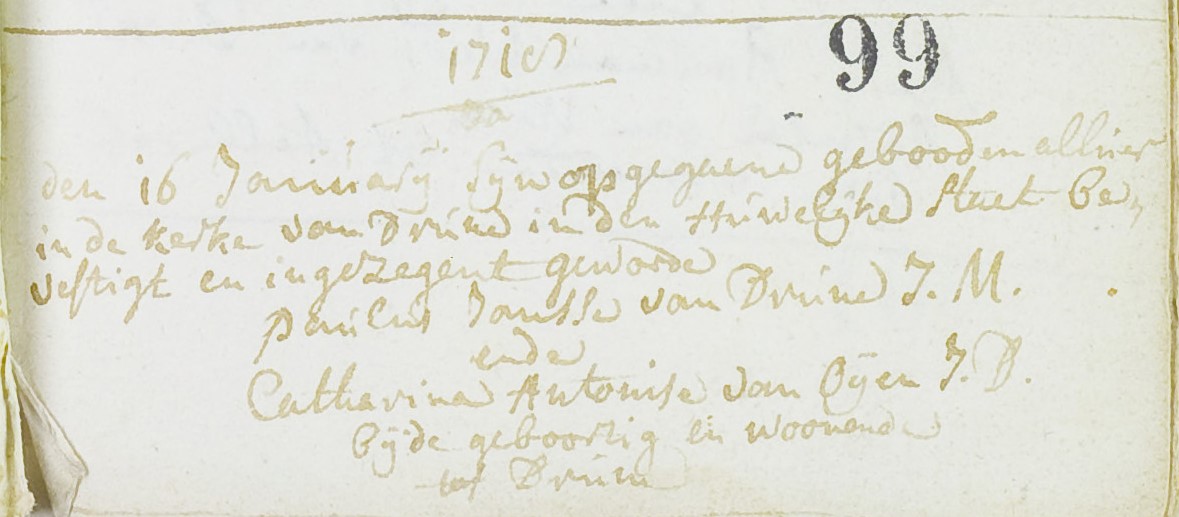 99
den 16 Januarÿ sÿn opgegaene gebooden alhier
in de kerke van Drune in den Huwelÿke staet be„
vestigt en ingezegent geworde
Paulus Jansse van Drune J. M.
ende
Catharina Antonisse van Oÿen J. D.
bÿde geboortig en woonende
tot Drune